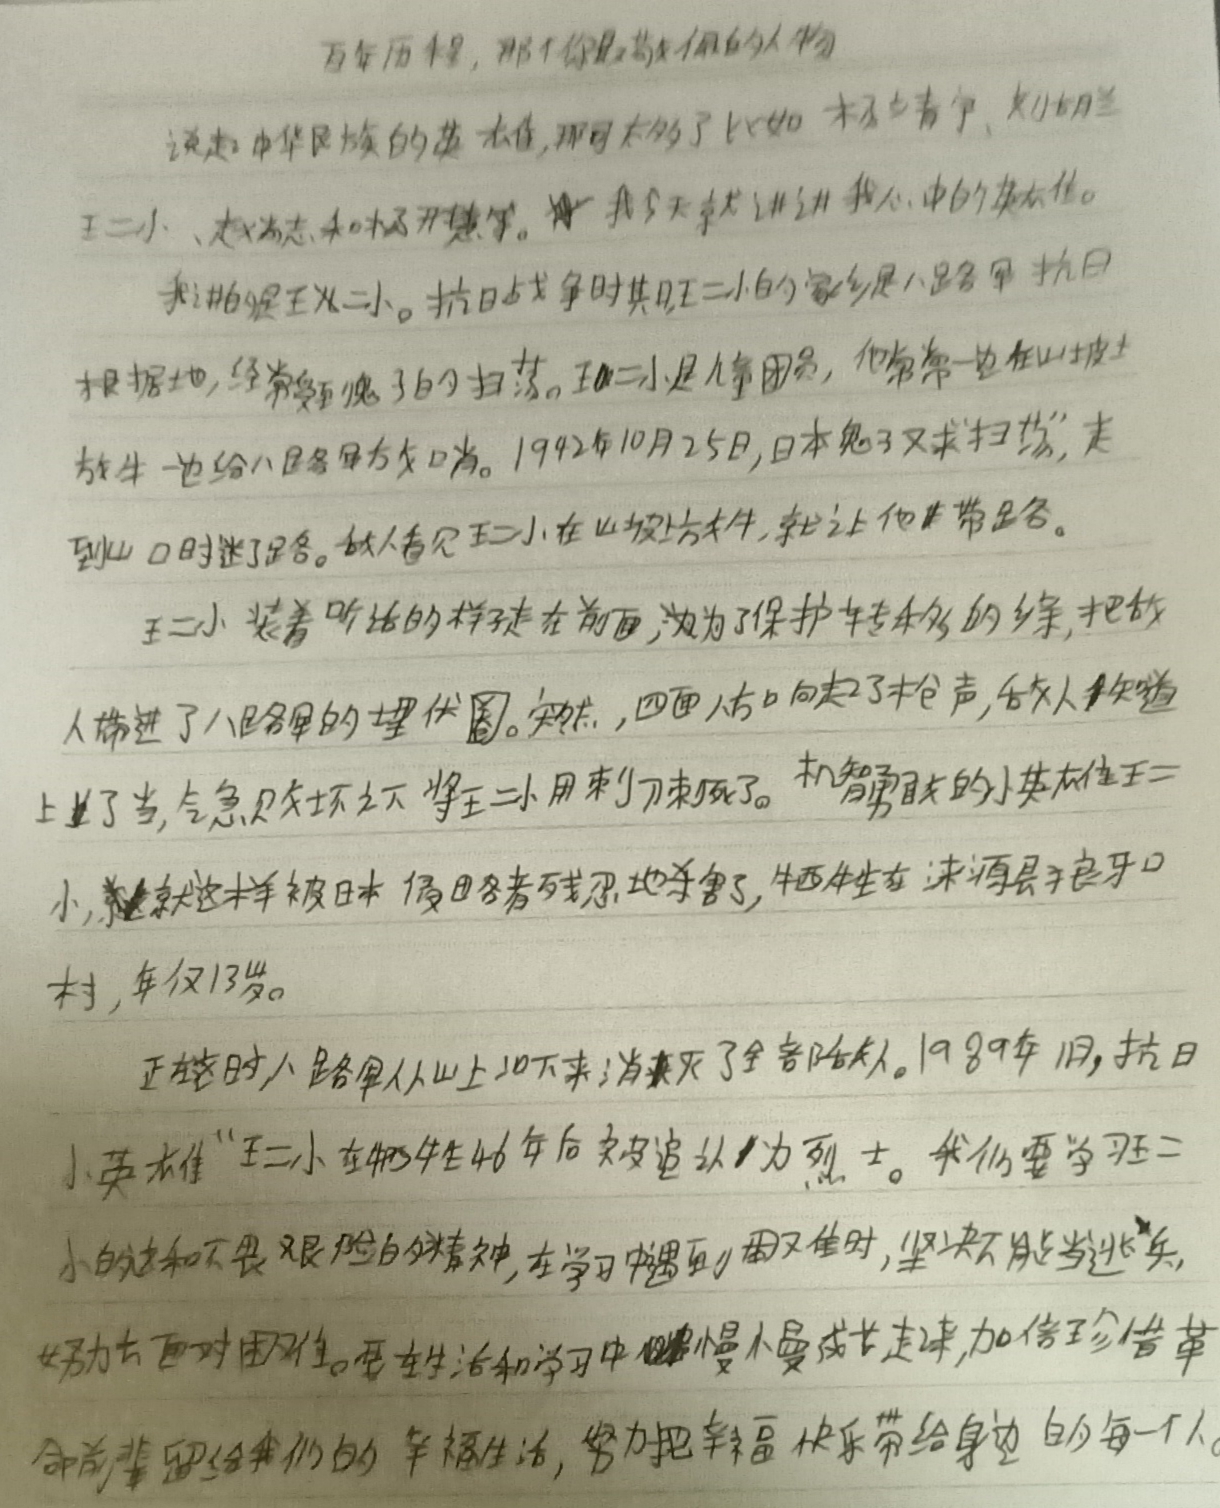 百年历程，那个你最敬佩的人物
说起中华民族的英雄，那可太多了比如 杨靖宇、刘胡兰
王二小、赵尚志和杨开慧等。我今天就讲讲我心中的英雄。
我讲的是王二小。抗日战争时其王二小的家乡是八路军抗日
根据地，经常受到鬼子的扫荡。王二小是儿童团员，他常常一边在山坡上
放牛一边给八路军放哨。1942年10月25日，日本鬼子又来“扫荡”，走
到山口时迷了路。敌人看见王二小在山坡上放牛，就让他带路。
王二小装着听话的样子走在前面，为了保护转移的乡亲，把敌
人带进了八路军的埋伏圈。突然，四面八方向起了枪声，敌人知道
上了当，气急败坏之下将王二小用刺刀刺死了。机智勇敢的小英雄王二
小，就这样被日本侵略者残忍地杀害了，牺牲在涞源县狼牙口
村，年仅13岁。
正在这时八路军从山上冲下来消灭了全部敌人。1989年 1月，抗日
小英雄“王二小在牺牲46年后突被追认为烈士。我们要学习王二
小的和不畏艰险的精神，在学习中遇到困难时，坚决不能当逃兵，
努力去面对困难。要在生活和学习中慢慢成长走来，加倍珍惜革
命前辈留给我们的幸福生活，努力把幸福快乐带给身边的每一个人。